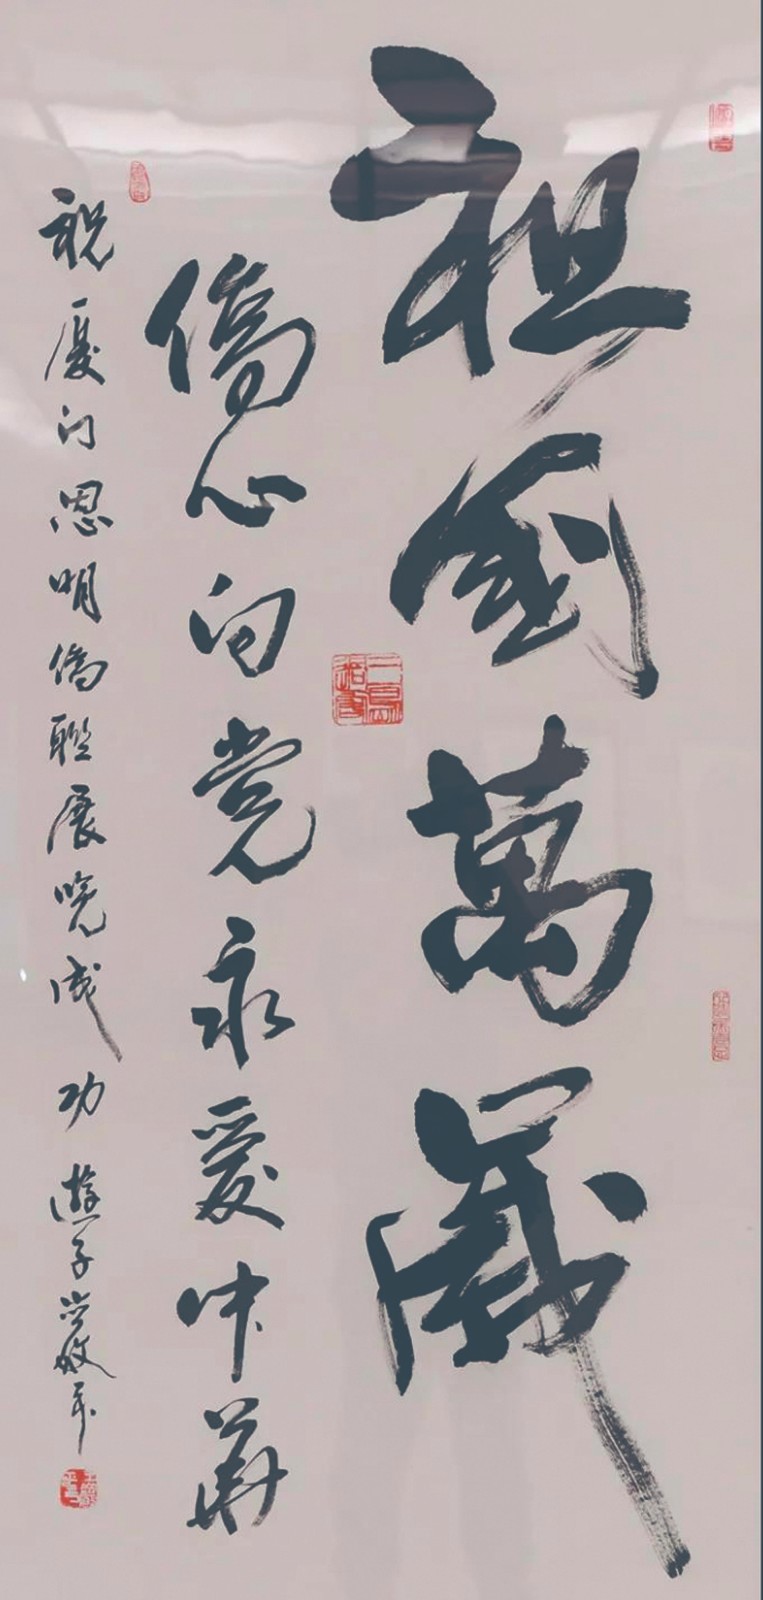 祖國萬歲
僑心向党永爱中華
祝厦门思明僑聯展览成功 遊子